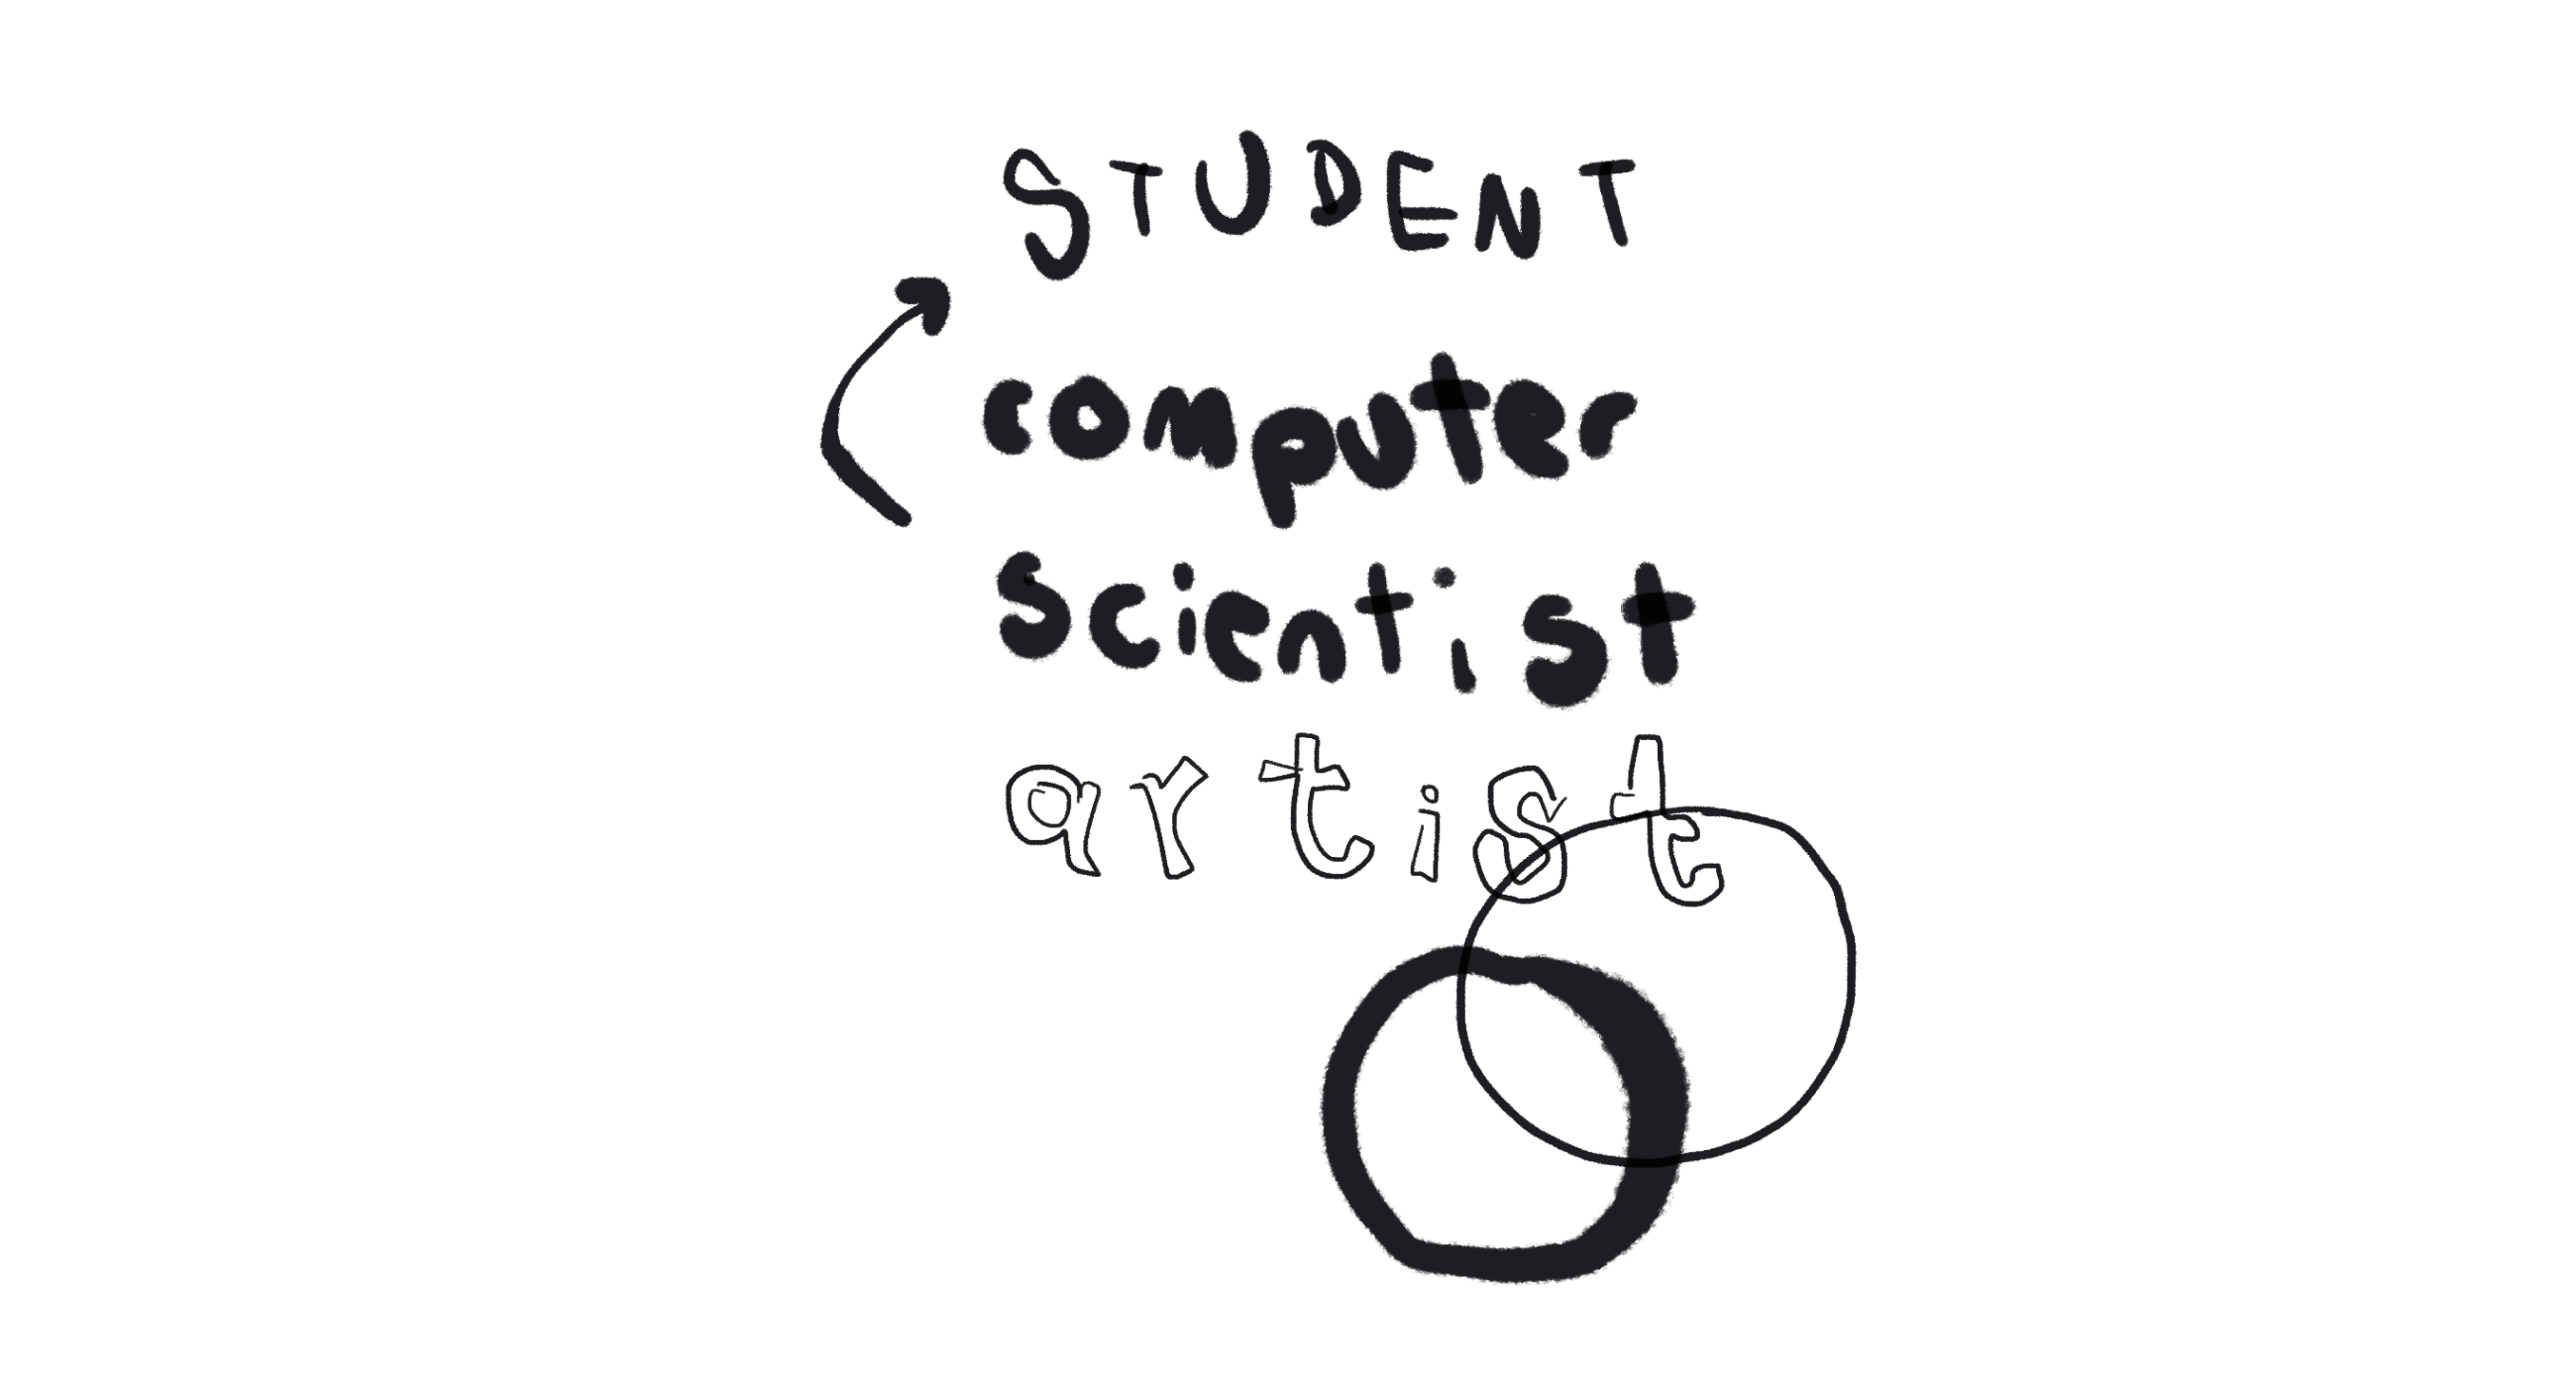 STUDENT
computer
scientist
artist